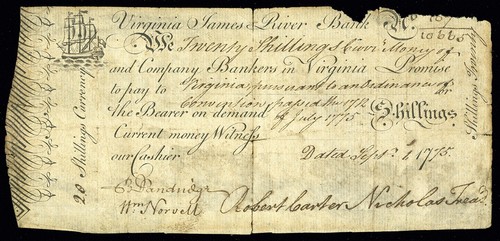 Virginia James River Bank No
10665
We Twenty Shillings Curr. Money of
and Company Bankers in Virginia Promise
to pay to Virginia, pursuant to an Ordinance of
or
Convention passed the 17th
the Bearer on demand of July 1775 Shillings
Current money Witness
our Cashier Dated Sept. 1, 1775.
B Dandridge
Wm Norvell Robert Carter Nicholas Treas.
20 Shillings Currency
Shillings